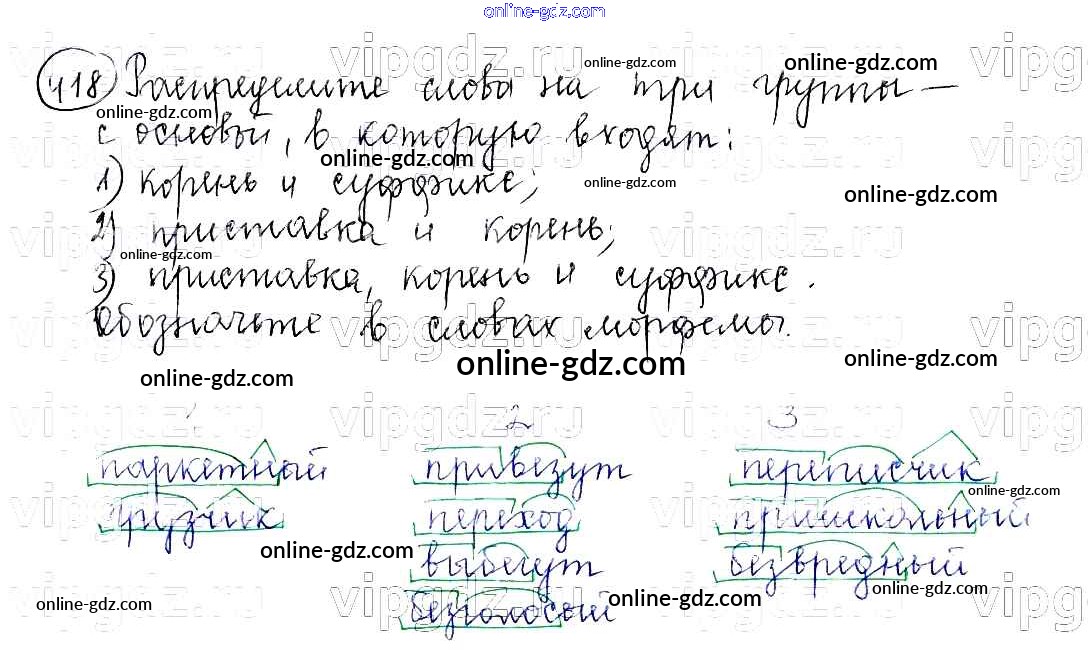 online-gdz.com
418 Распределите слова на три группы –
с основой, в которую входят:
1) корень и суффикс;
2) приставка и корень;
3) приставка, корень и суффикс.
Обозначьте в словах морфемы.
1 2 3
паркетный привезут переписчик
грузчик переход пришкольный
выбегут безвредный
безголосый
vipgdz.ru
online-gdz.com